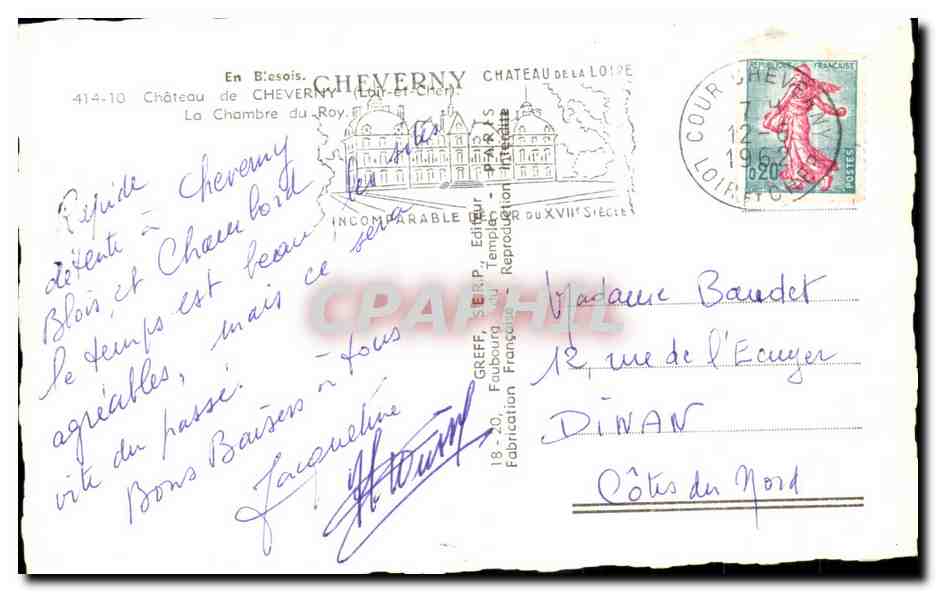 En Blesois.
414-10 Château de CHEVERNY (Loir-et-Cher)
La Chambre du Roy.
CHEVERNY CHATEAU DE LA LOIRE
INCOMPARABLE DECOR DU XVIIe SIÈCLE
REPUBLIQUE FRANÇAISE
0,20
POSTES
COUR CHEVERNY
12-
1962
LOIR ET CHER
Rapide
détente à Cheverny
Blois, et Chambord les sites
le temps est beau,
agréables, mais ce sera
vite du passé.
Bons Baisers à tous
Jacqueline
GREFF, S.E.R.P., Editeur
18-20, Faubourg du Temple - PARIS
Fabrication Française - Reproduction Interdite
CPAPHIL
Madame Baudet
12, rue de l'Ecuyer
DINAN
Côtes du Nord